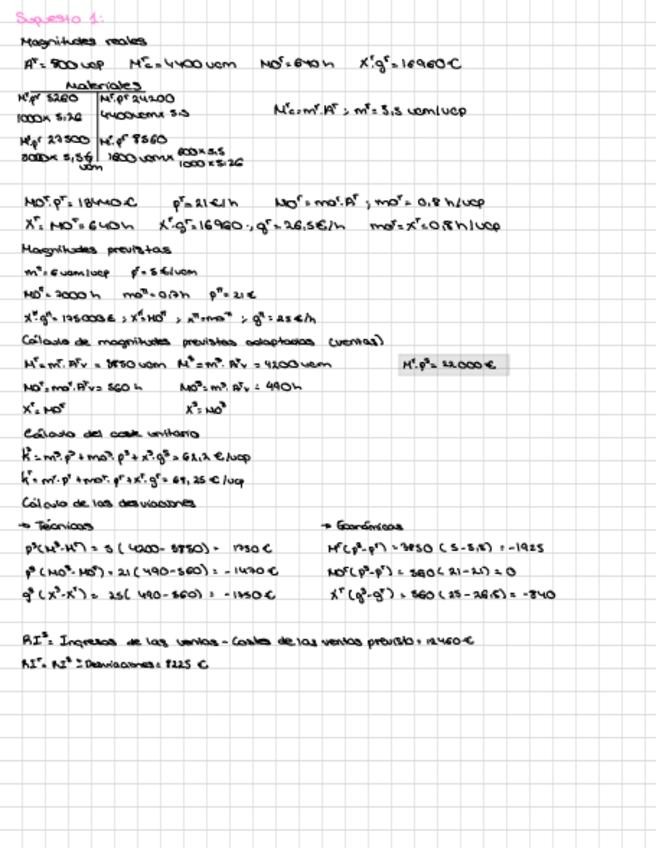 Supuesto 1:
Magnitudes reales
Aʳ = 800 ucp Mʳc = 4400 ucm MOʳ = 640 h Xʳ.gʳ = 16960 €
Materiales
Mʳ.pʳ 5260 Mʳ.pʳ 24200
1000 x 5,26 4400ucm x 5,5 Mʳc = mʳ.Aʳ ; mʳ = 5,5 ucm/ucp
Mʳ.pʳ 27500 Mʳ.pʳ 8560
x 5,5 1600 ucm x 600 x 5,5
ucm 1000 x 5,26
MOʳ.pʳ = 13440 € pʳ = 21 €/h MOʳ = moʳ.Aʳ ; moʳ = 0,8 h/ucp
Xʳ = MOʳ = 640h Xʳ.gʳ = 16960 ; gʳ = 26,5 €/h moʳ = xʳ = 0,8 h/ucp
Magnitudes previstas
= 6 ucm/ucp = 5 €/ucm
= 7000 h = 0,7h = 21 €
= 175000 € ; = 25 €/h
Cálculo de magnitudes previstas adaptadas (ventas)
Mʳ = mʳ.Aʳv = 3850 ucm Mˢ = mˢ.Aʳv = 4200 ucm Mʳ.pˢ = 22000 €
MOʳ = moʳ.Aʳv = 560 h MOˢ = mˢ.Aʳv = 490h
Xʳ = MOʳ Xˢ = MOˢ
Cálculo del coste unitario
kˢ = mˢ.pˢ + moˢ.pˢ + xˢ.gˢ = €/ucp
kʳ = mʳ.pʳ + moʳ.pʳ + xʳ.gʳ = 68,25 €/ucp
Cálculo de las desviaciones
→ Técnicas → Económicas
pˢ(Mˢ-Mʳ) = 5 (4200 - 3850) = 1750 € Mʳ(pˢ-pʳ) = 3850 (5 - 5,5) = -1925
pˢ(MOˢ-MOʳ) = 21 (490 - 560) = -1470 € MOʳ(pˢ-pʳ) = 560 (21 - 21) = 0
gˢ(Xˢ-Xʳ) = 25 (490 - 560) = -1750 € Xʳ(gˢ-gʳ) = 560 (25 - 26,5) = -840
RIˢ = Ingresos de las ventas - Costes de las ventas previsto = 12460 €
RIʳ = RIˢ ± Desviaciones = 8225 €